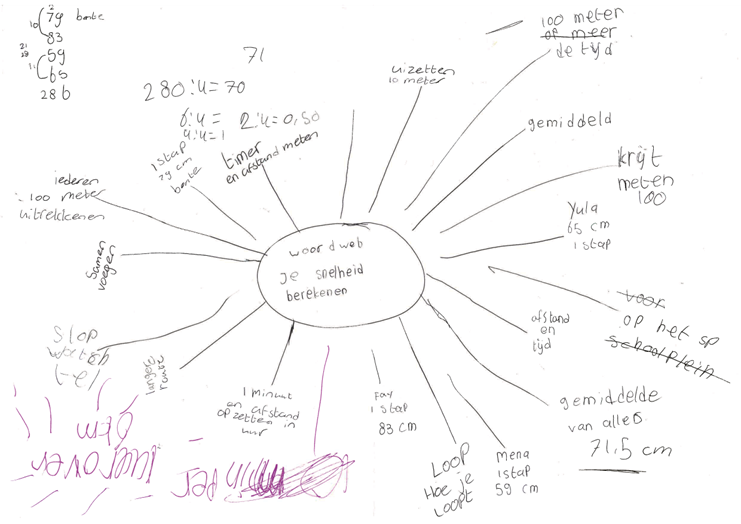 79 bente
83
59
65
286
71
280:4=70
6:4=
4:4=1
2:4=0,50
uizetten
10 meter
100 meter
of meer
de tijd
gemiddeld
krijt
meten
100
Yula
65 cm
1 stap
voor
op het sp
schoolplein
afstand
en
tijd
gemiddelde
van alles
71,5 cm
mena
1 stap
59 cm
LOOP
Hoe je
loopt
Fay
1 stap
83 cm
1 minuut
en afstand
op zetten in
uur
langere
ruimte
Stop
tel
Samen
voegen
iederen
100 meter
uitrekkenen
1 stap
79 cm
bente
timer
en afstand meten
woordweb
je snelheid
berekenen
per